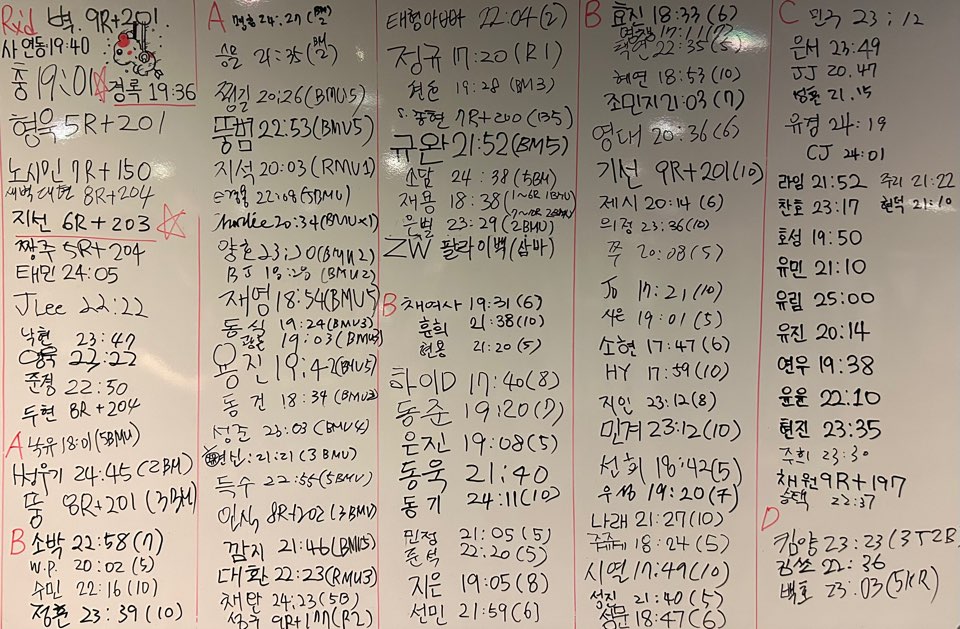 Rx'd 벽. 9R+201
사 연동 19:40
충 19:01 ☆ 경록 19:36
형욱 5R+201
노시민 7R+150
새벽 대현 8R+204
지선 6R+203 ☆
짱주 5R+204
태민 24:05
JLee 22:22
낙현 23:47
22:22
준경 22:50
두현 8R+204
A 낙유 18:01 (5BMU)
24:45 (2BM)
뚱 8R+201
B 소박 22:58 (7)
W.P. 20:02 (5)
수민 22:16 (10)
정훈 23:39 (10)
A
쩡길 20:26 (BMU5)
뚱범 22:53 (BMU5)
지석 20:03 (RMU1)
20:34
양호
BJ 18:28 (BMU2)
재영 18:54 (BMU5)
동실 19:24 (BMU3)
19:03
용진 19:42 (BMU5)
동건 18:34
성준 23:03 (BMU4)
21:21 (3BMU)
득수 22:55 (5BMU)
인식 8R+202 (3BMU)
깜지 21:46
대환 22:23 (RMU3)
24:23
9R+177 (R2)
태형아빠 22:04 (2)
정규 17:20 (R1)
19:28 (BM3)
종현 7R+200
규완 21:52 (BM5)
소담 24:38 (5BM)
재용 18:38
은별 23:29 (2BMU)
ZW 팔라이백 (삼바)
B 채여사 19:31 (6)
훈희 21:38 (10)
현용 21:20 (5)
하이D 17:40 (8)
동준 19:20 (7)
은진 19:08 (5)
동욱 21:40
동기 24:11 (10)
민정 21:05 (5)
준석 22:20 (5)
지은 19:05 (8)
선민 21:59 (6)
B 효진 18:33 (6)
22:35 (5)
혜연 18:53 (10)
조민지 21:03 (7)
영대 20:36 (6)
기선 9R+201 (10)
제시 20:14 (6)
의정 23:36 (10)
쭈 20:08 (5)
Jo 17:21 (10)
시은 19:01 (5)
소현 17:47 (6)
HY 17:59 (10)
지인 23:12 (8)
민경 23:12 (10)
선희 18:42 (5)
우성 19:20 (7)
나래 21:27 (10)
18:24 (5)
시열 17:49 (10)
성진 21:40 (5)
성문 18:47 (6)
C 민국 23:12
은서 23:49
JJ 20.47
21.15
유경 24:19
CJ 24:01
라임 21:52 주리 21:22
찬호 23:17 현덕 21:10
효성 19:50
유민 21:10
유림 25:00
유진 20:14
연우 19:38
윤윤 22:10
현진 23:35
주희 23:30
채원 9R+197
승택 22:37
D
킴양 23:23
22:36
백호 23:03